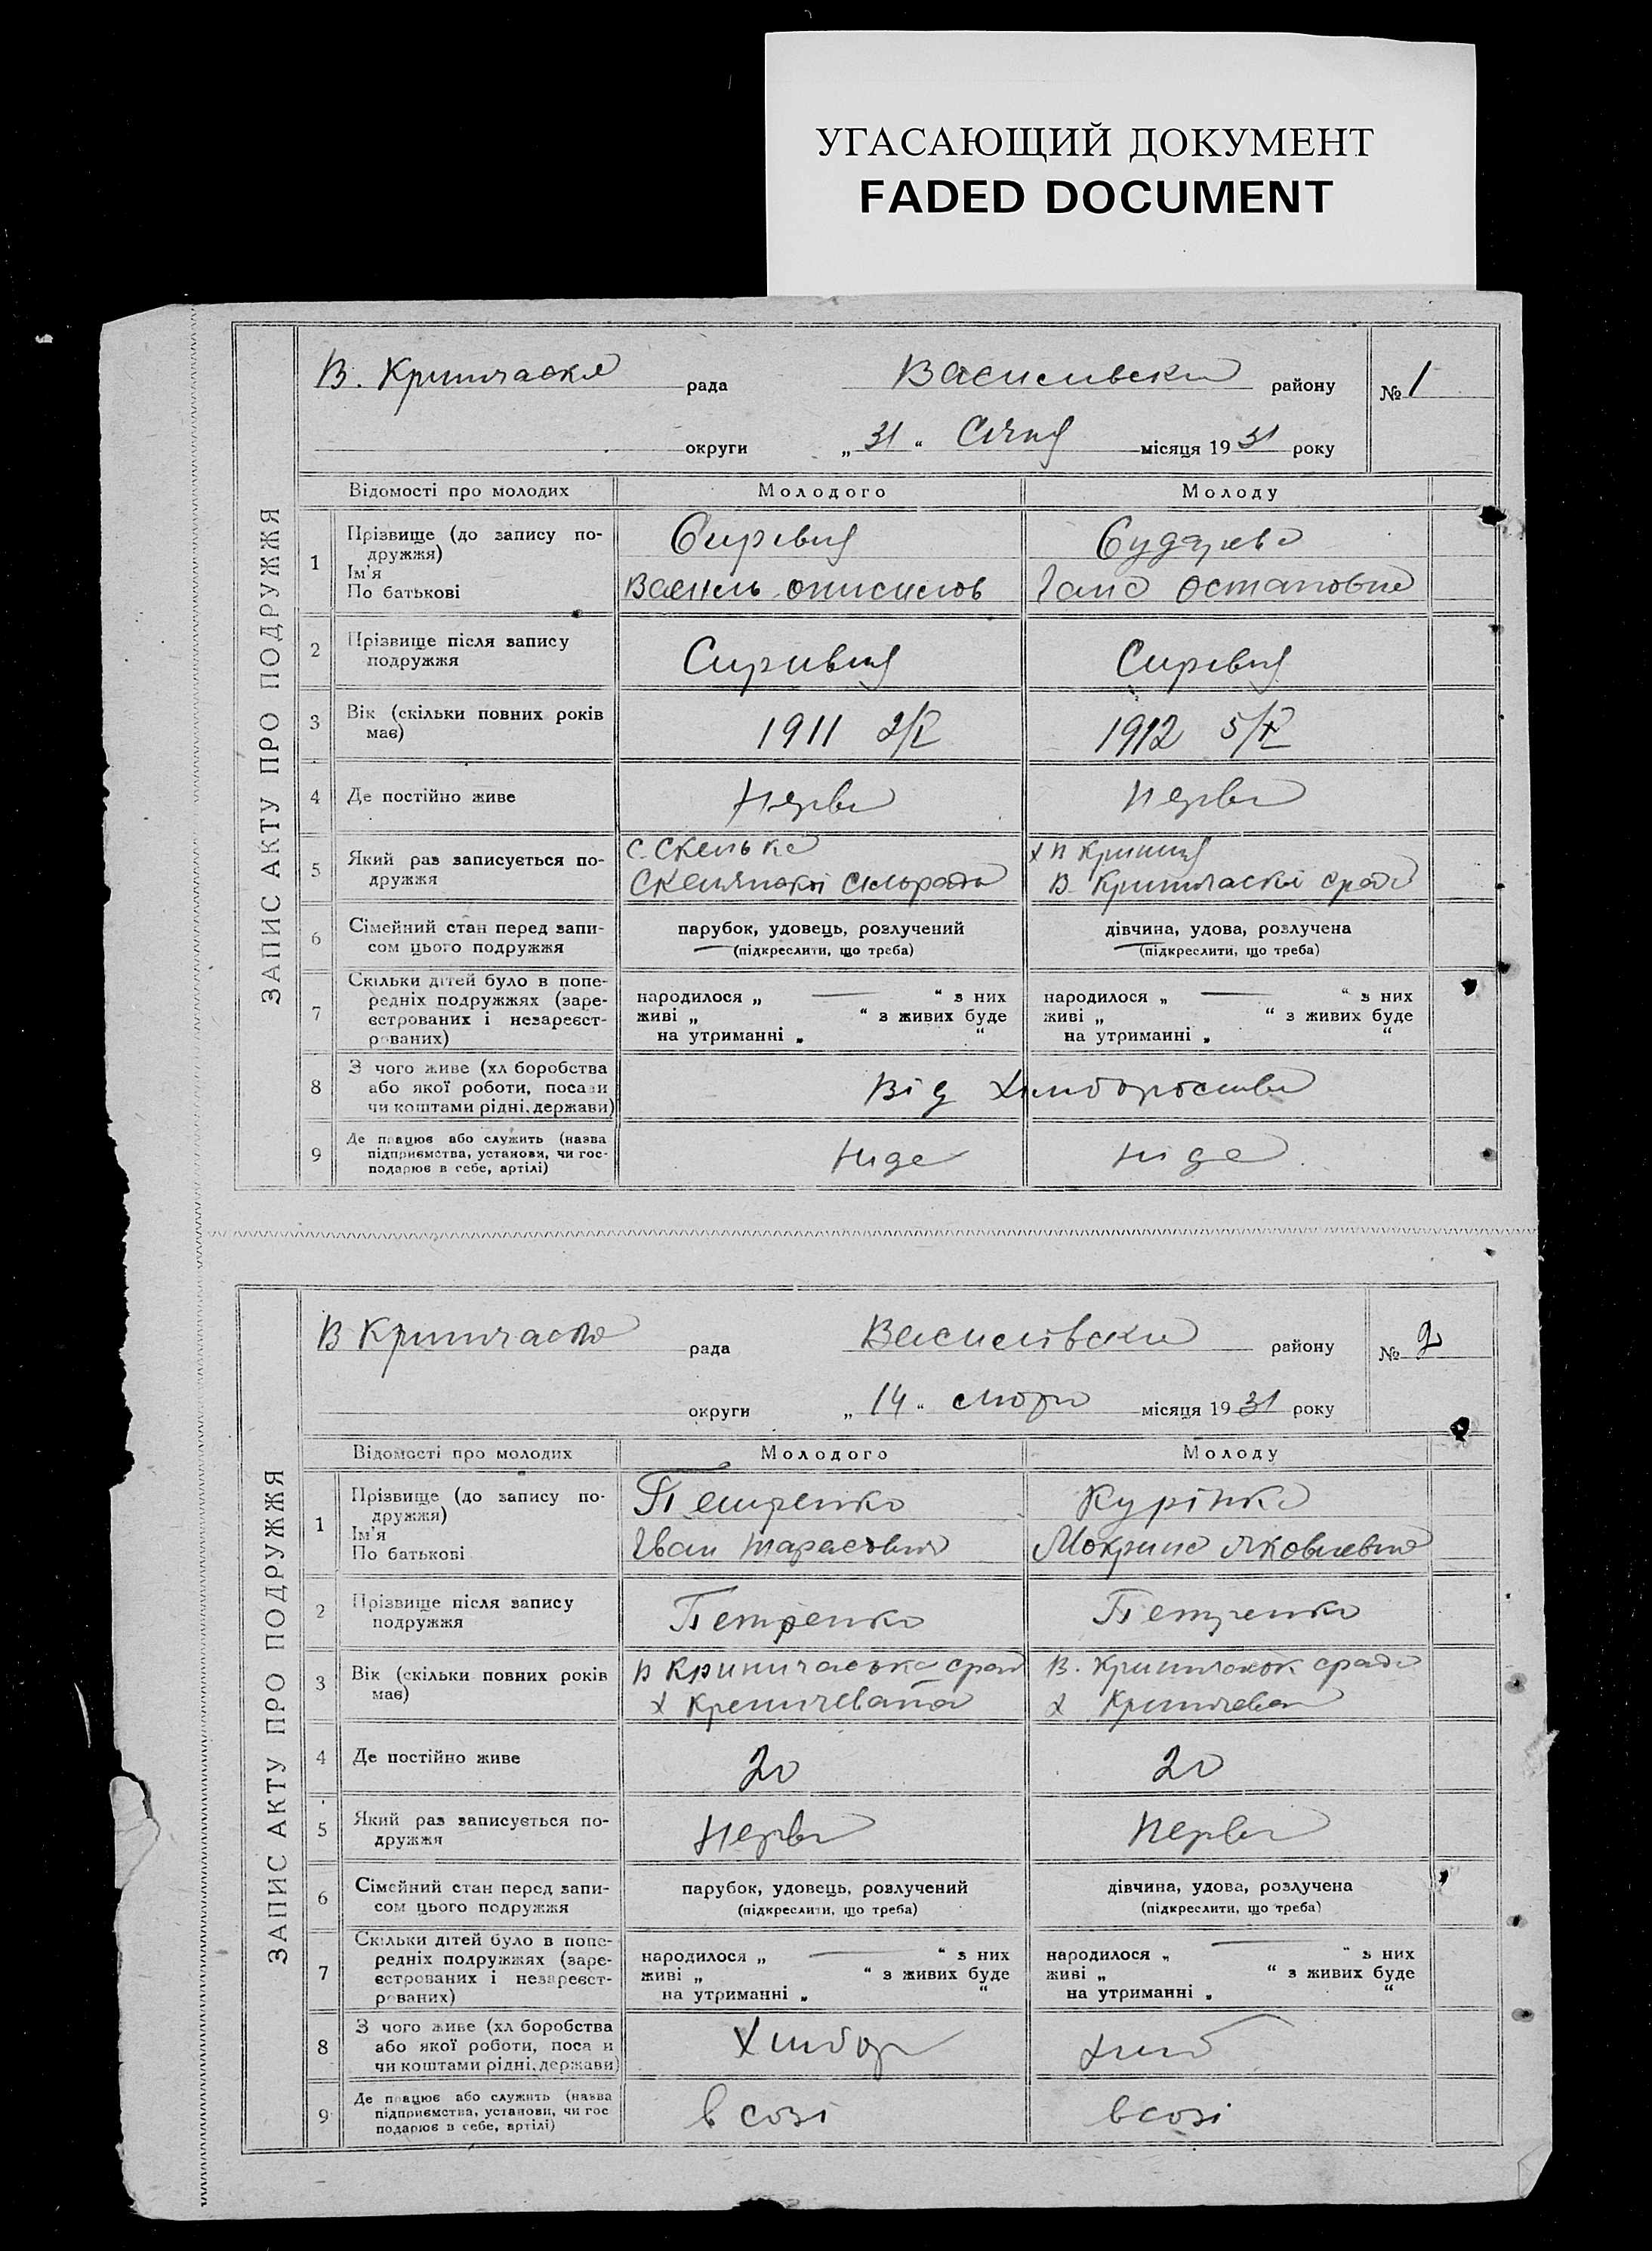 УГАСАЮЩИЙ ДОКУМЕНТ
FADED DOCUMENT
ЗАПИС АКТУ ПРО ПОДРУЖЖЯ
В. Криничаска рада Василивски району № 1
округи „31“ Січня місяця 1931 року
Відомості про молодих Молодого Молоду
1 Прізвище (до запису по-
дружжя)
Ім'я
По батькові
Сирівня
Василь
Сударева
Гана Остаповна
2 Прізвище після запису
подружжя
Сиривня Сирівня
3 Вік (скільки повних років
має)
1911 1912
4 Де постійно живе
Перви Перви
5 Який раз записується по-
дружжя
с. Скелька
Скелянскої сельрада
х
В. Криничаскі сради
6 Сімейний стан перед запи-
сом цього подружжя
парубок, удовець, розлучений
(підкреслити, що треба)
дівчина, удова, розлучена
(підкреслити, що треба)
7 Скільки дітей було в попе-
редніх подружжях (заре-
єстрованих і незареєст-
рованих)
народилося „ — “ з них
живі „ “ з живих буде
на утриманні „ “
народилося „ — “ з них
живі „ “ з живих буде
на утриманні „ “
8 З чого живе (хліборобства
або якої роботи, посади
чи коштами рідні, держави)
Від хлиборобства
9 Де працює або служить (назва
підприємства, установи, чи гос-
подарює в себе, артілі)
Ниде Ниде
ЗАПИС АКТУ ПРО ПОДРУЖЖЯ
В Криничаска рада Василівски району № 2
округи „14“ місяця 1931 року
Відомості про молодих Молодого Молоду
1 Прізвище (до запису по-
дружжя)
Ім'я
По батькові
Петренко
Іван Тарасович
Курінка
Мокрина Яковлевна
2 Прізвище після запису
подружжя
Петренко Петренко
3 Вік (скільки повних років
має)
В Криничаська срад
х Креничевата
В. Криничанск срада
х Криничеват
4 Де постійно живе
20 20
5 Який раз записується по-
дружжя
Перви Перви
6 Сімейний стан перед запи-
сом цього подружжя
парубок, удовець, розлучений
(підкреслити, що треба)
дівчина, удова, розлучена
(підкреслити, що треба)
7 Скільки дітей було в попе-
редніх подружжях (заре-
єстрованих і незареєст-
рованих)
народилося „ — “ з них
живі „ “ з живих буде
на утриманні „ “
народилося „ — “ з них
живі „ “ з живих буде
на утриманні „ “
8 З чого живе (хліборобства
або якої роботи, посади
чи коштами рідні, держави)
Хлибор хлиб
9 Де працює або служить (назва
підприємства, установи, чи гос
подарює в себе, артілі)
в созі в созі